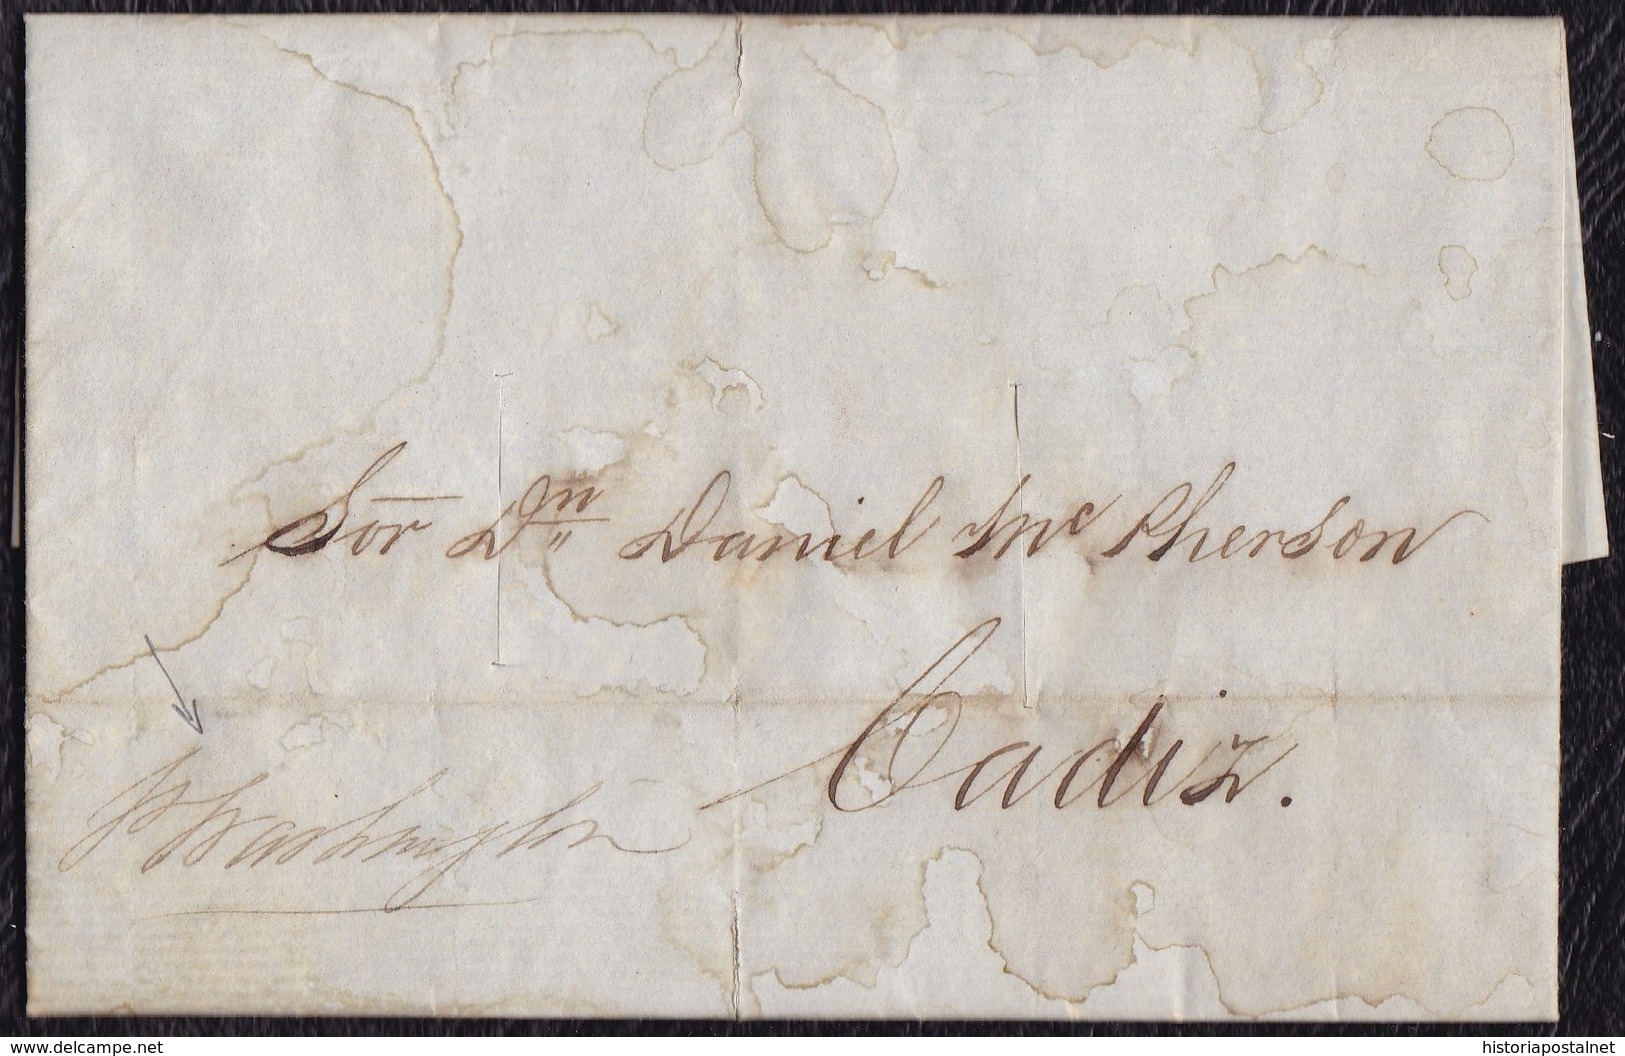 Sor Dn Daniel Mc Pherson
Cadiz.
p Washington
www.delcampe.net
historiapostalnet